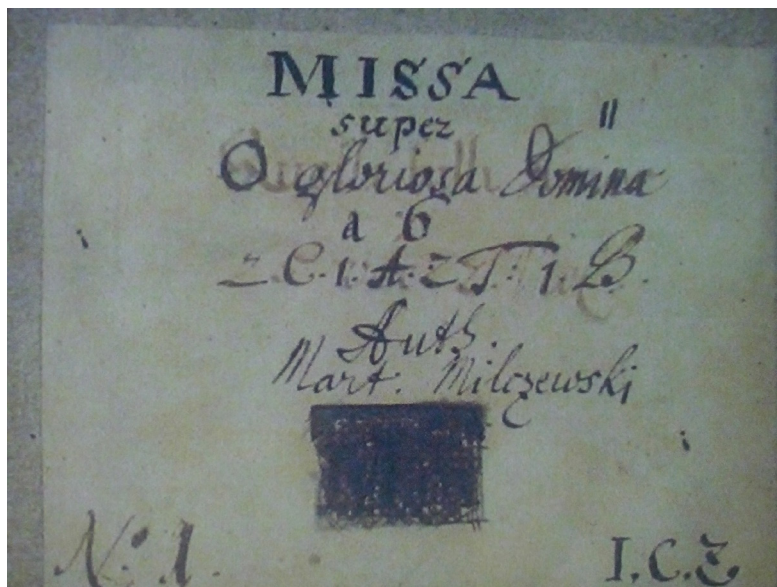 MISSA
super
O gloriosa Domina
a 6
2 C. 1. A. 2 T. 1 B.
Auth.
Mart: Milczewski
No. 1.
I.C.Z.